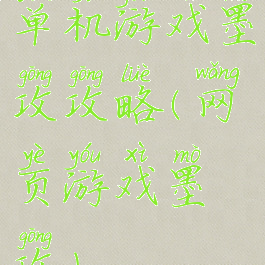 单机游戏墨
gōng gōng lüè wǎng
攻攻略(网
yè yóu xì mò
页游戏墨
gōng
攻)